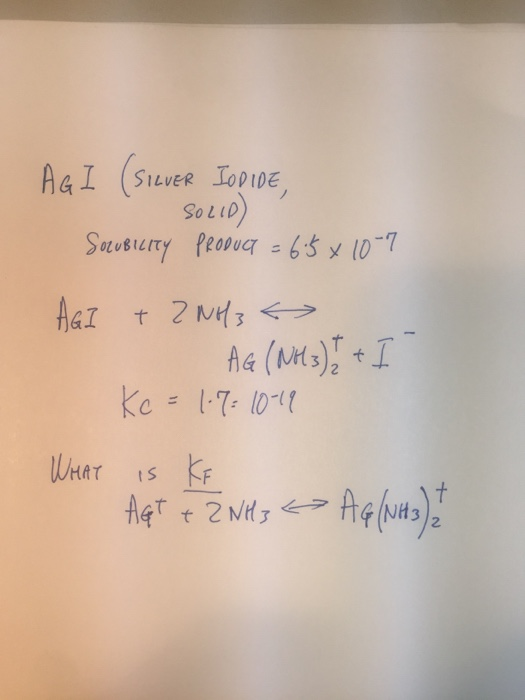 AGI (SILVER IODIDE,
SOLID)
SOLUBILITY PRODUCT = 6.5 x 10⁻⁷
AGI + 2 NH₃ ↔
AG(NH₃)₂⁺ + I⁻
Kc = 1.7= 10⁻¹⁹
WHAT IS KF
AGT + 2 NH₃ ↔ AG(NH₃)₂⁺